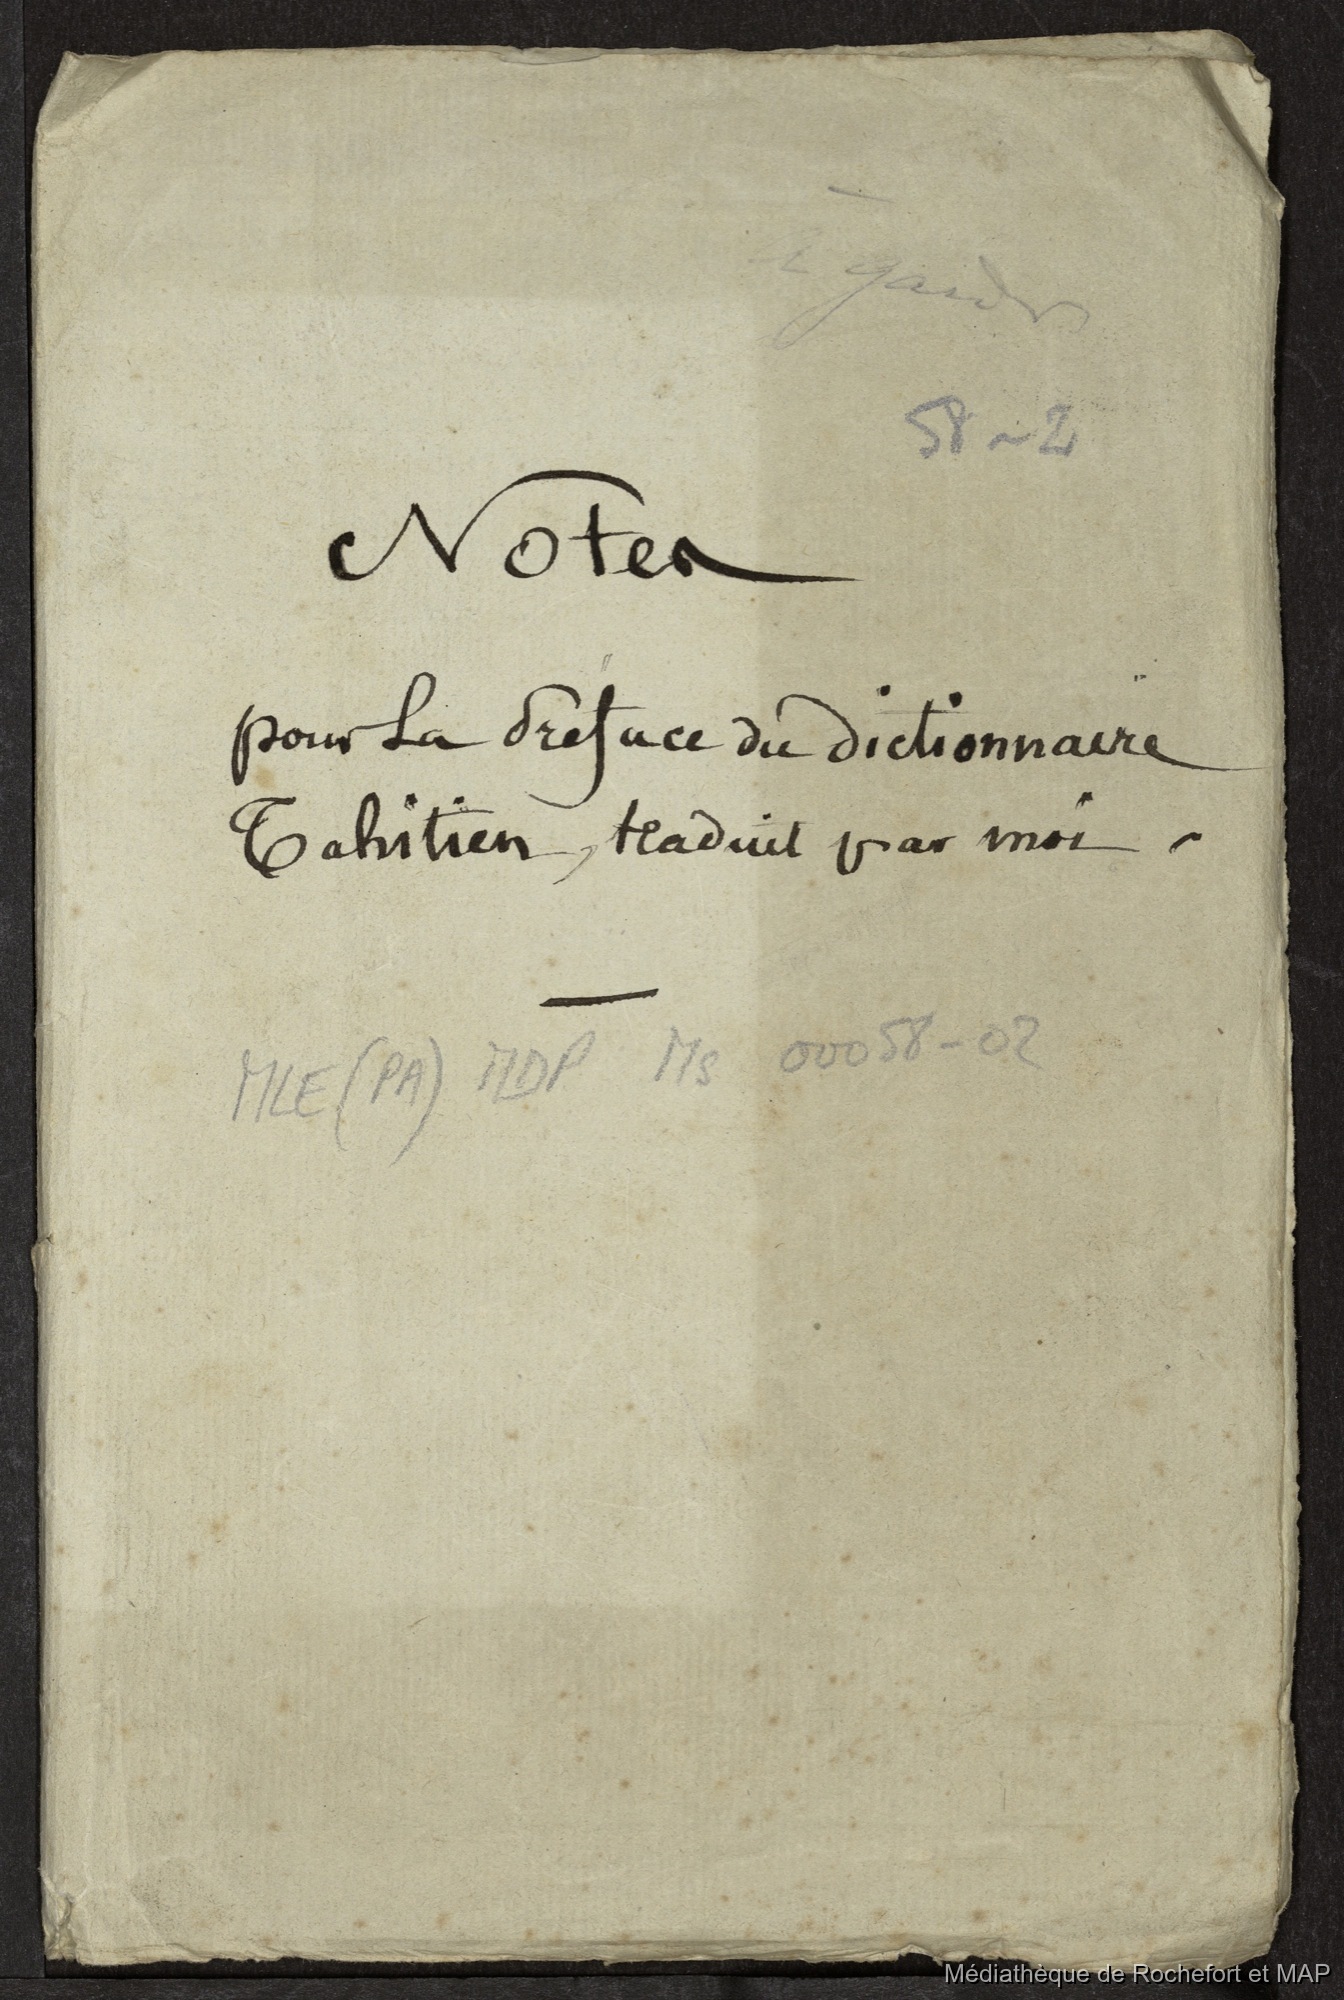 à garder
58-2
Notes
pour La Préface du dictionnaire
Tahitien, traduit par moi.
MLE (PA) MDP Ms 00058-02
Médiathèque de Rochefort et MAP